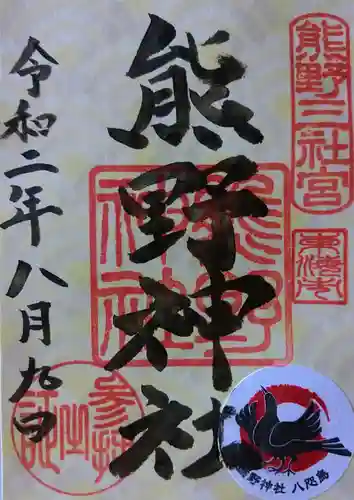 熊野三社宮
熊野神社
令和二年八月九日
熊野神社
参拝之証
野神社 八咫烏